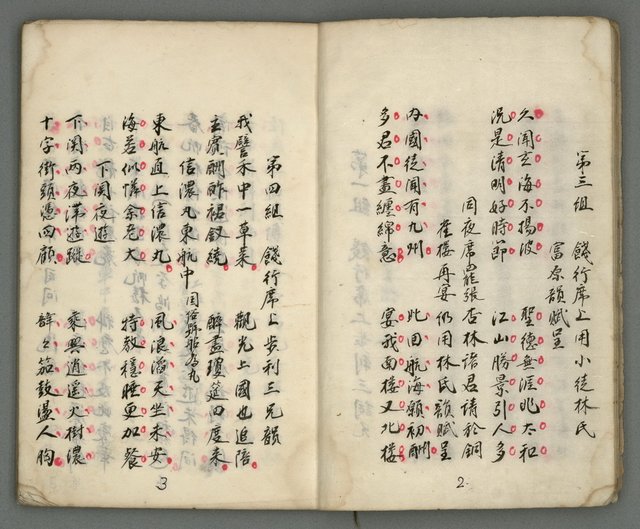 第三組　餞行席上用小徒林氏
富原韻賦呈
久聞玄海不揚波　聖德無涯兆太和
況是清明好時節　江山勝景引人多
同夜席罷張杏林諸君請於銅
雀樓再宴仍用林氏韻賦呈
內國徒聞有九州　此回航海願初酬
多君不盡纏綿意　宴我南樓又北樓
2
第四組　餞行席上步利三兄韻
我譬水中一草萊　觀光上國也追陪
主賓酬酢裙釵繞　醉畫瓊筵四度來
信濃丸東航中
東航直上信濃丸　風浪滔天坐未安
海若似憐余老大　特教穩睡更加餐
下関夜遊
下関兩夜滯遊蹤　乘興逍遙火樹濃
十字街頭憑四顧　辭々笳鼓盪人胸
3